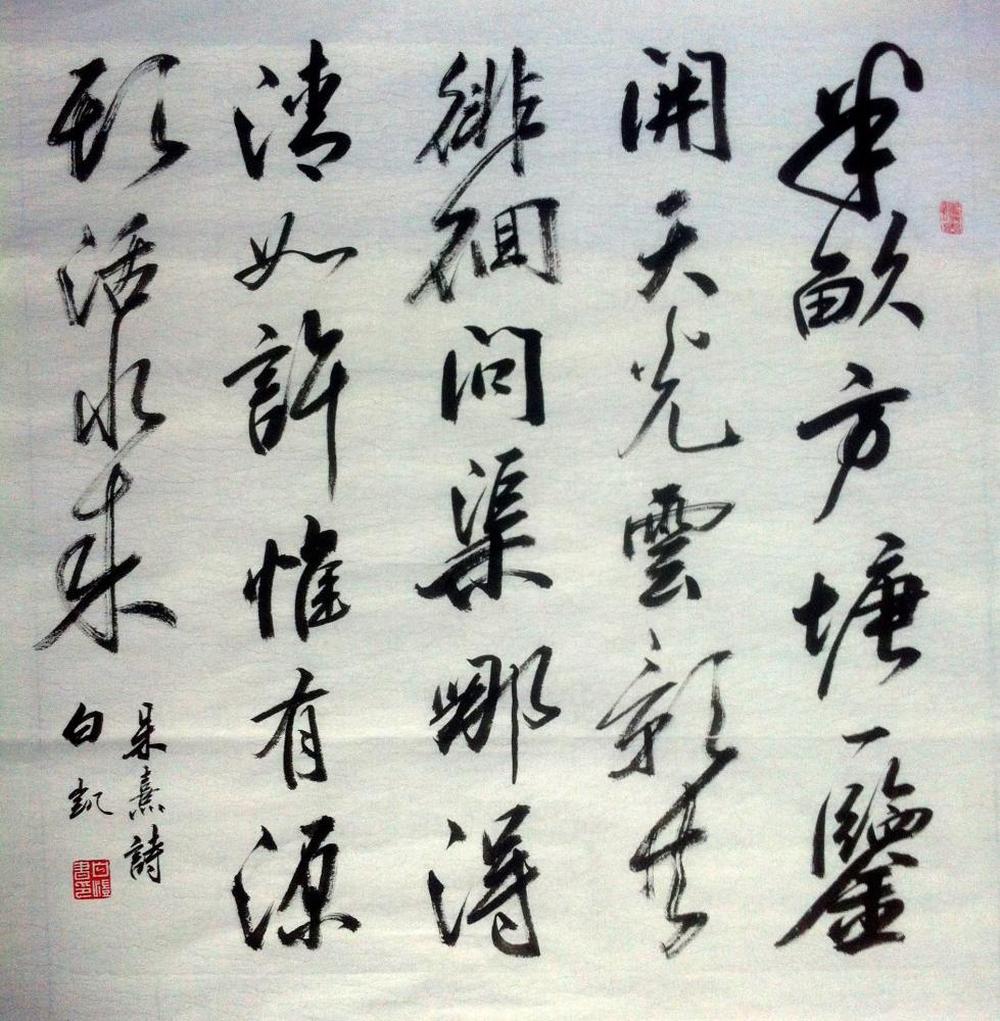 半畝方塘一鑒
開天光雲影共
徘徊問渠哪得
清如許惟有源
頭活水来
朱熹詩
白凱